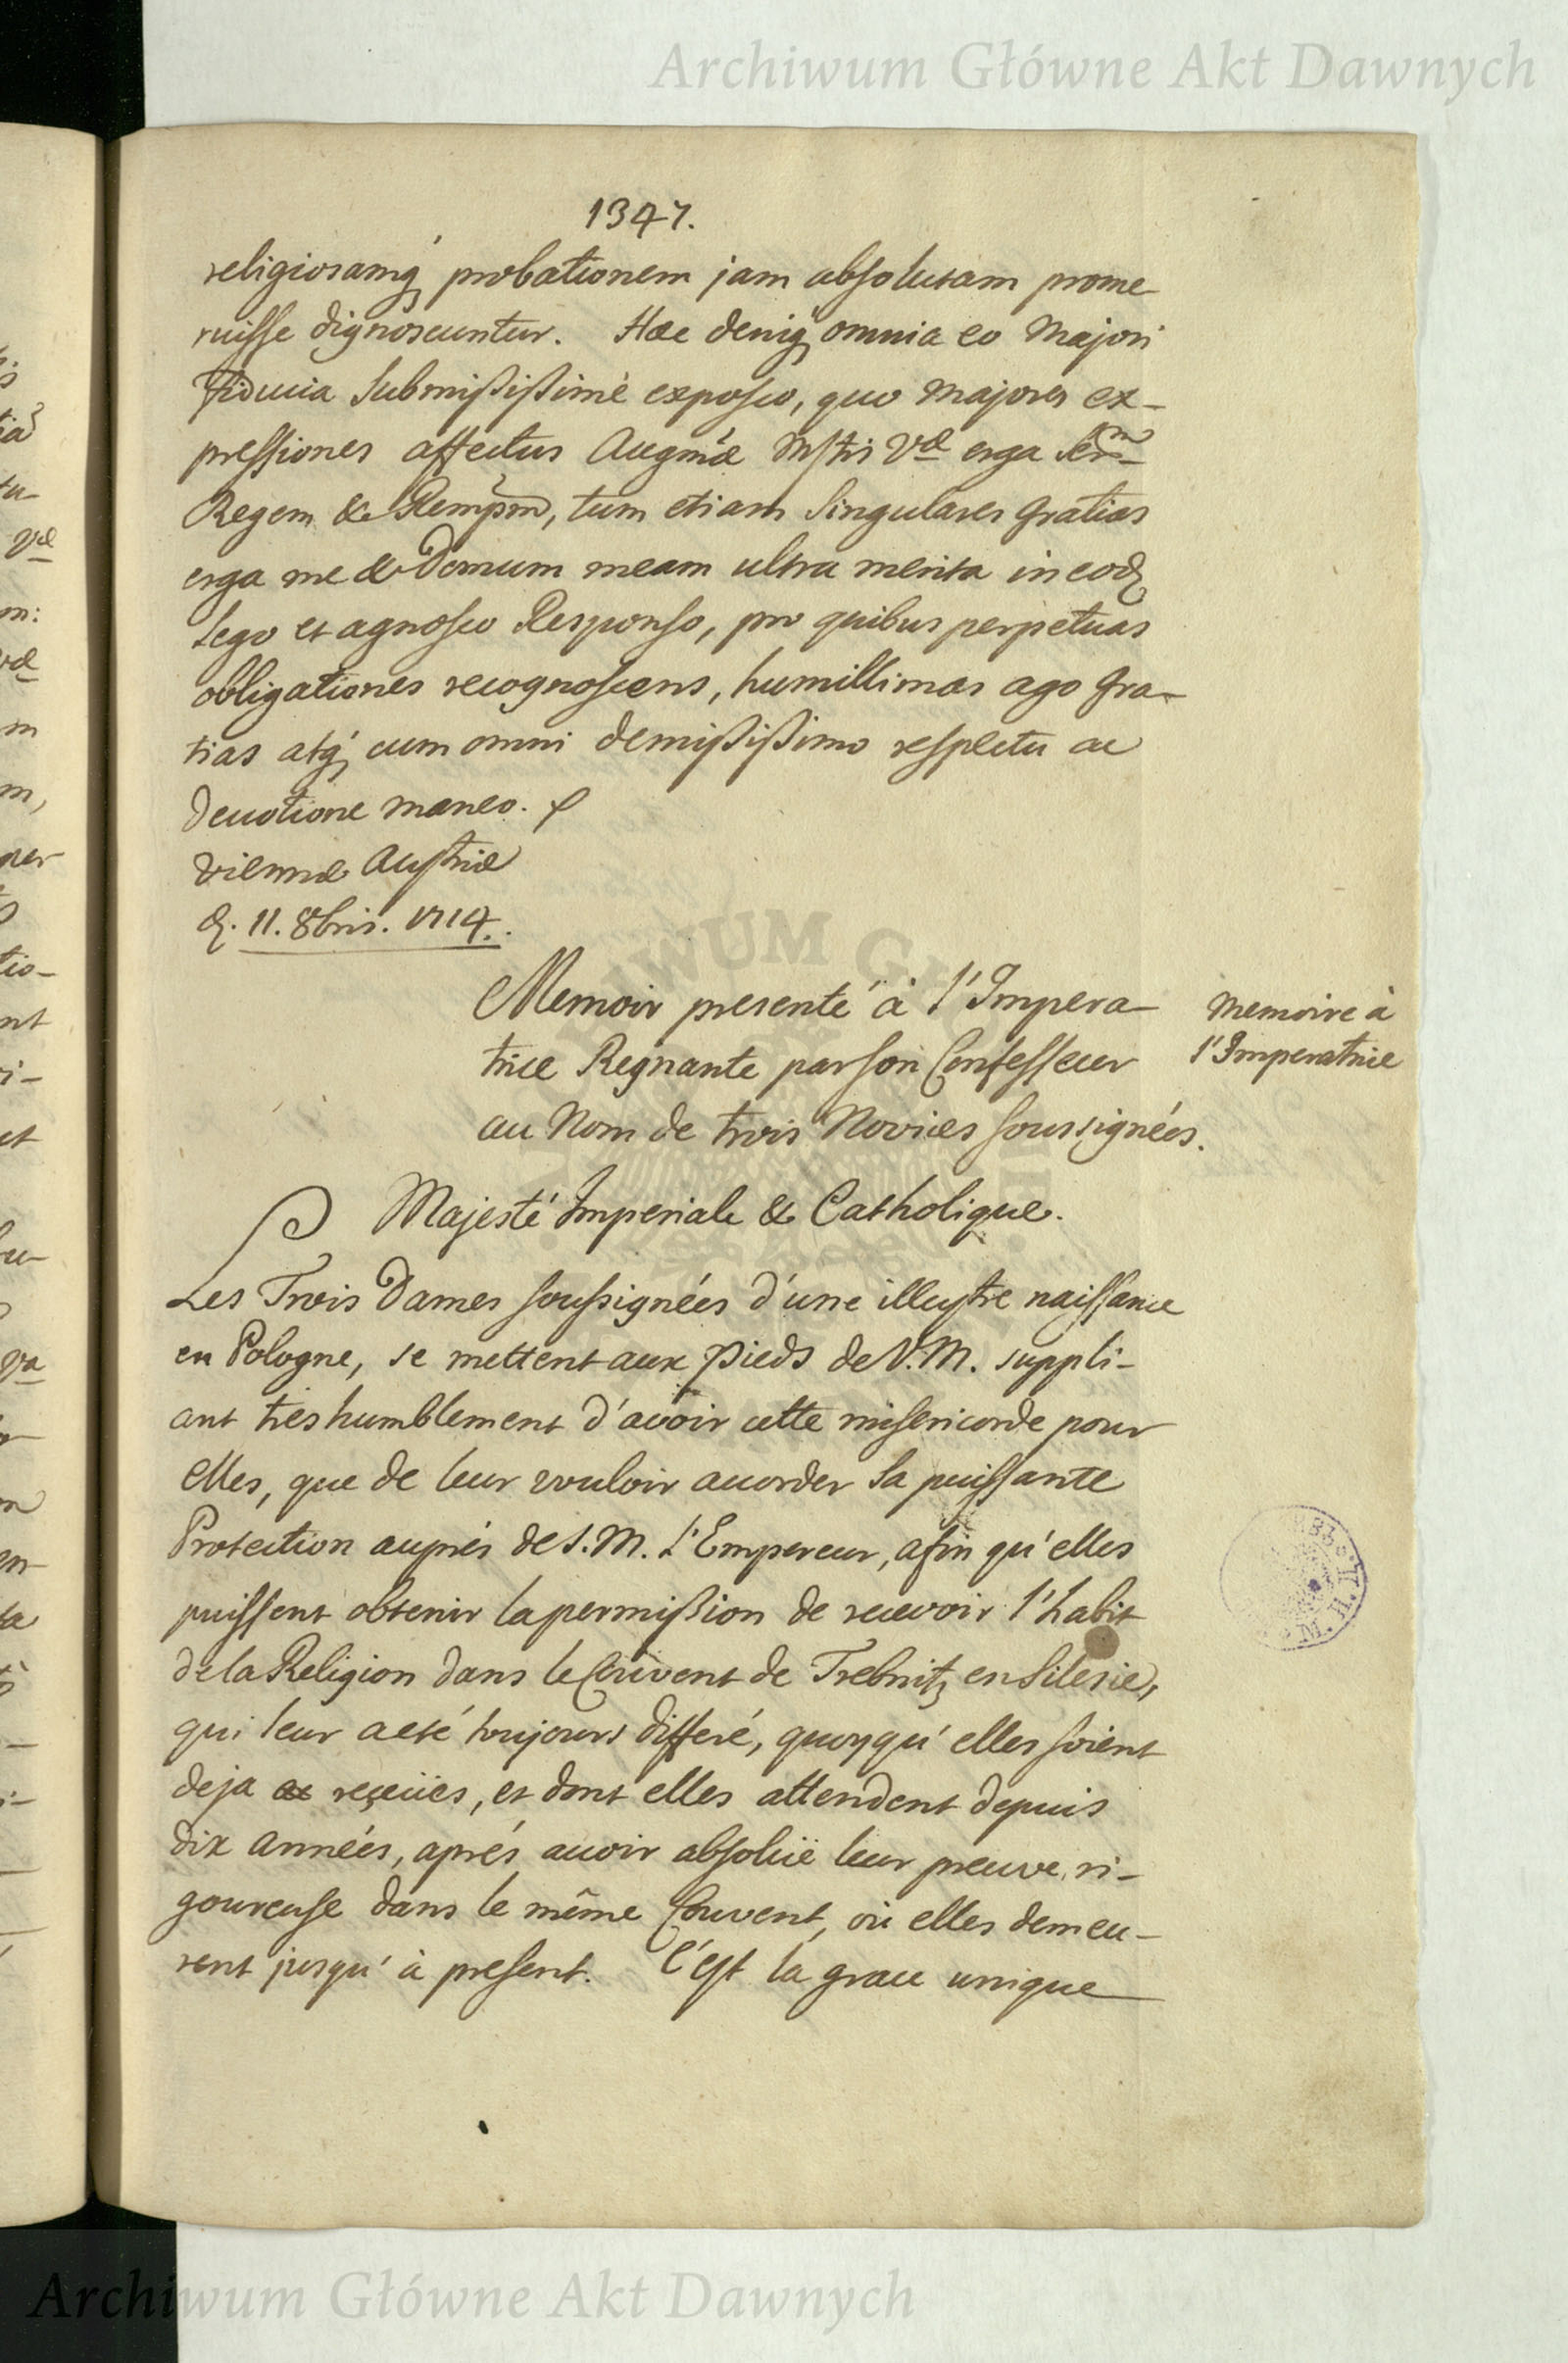 Archiwum Główne Akt Dawnych
1347.
religiosamq́; probationem jam absolutam prome-
ruisse dignoscuntur. Hæc deniq; omnia eo Majori
Fiducia Submißißimè exposco, quo Majores ex-
pressiones affectus Augmæ Mſtis Væ erga Ser̄m
Regem & Rempm̄, tum etiam Singulares Gratias
erga me & Domum meam ultra merita in eod;
Lego et agnosco Responso, pro quibus perpetuas
obligationes recognoscens, humillimas ago Gra-
tias atq́; cum omni demißißimo respectu ac
Devotione maneo.
Viennæ Austriæ
d. 11. 8bris. 1714.
Memoir presenté à l'Impera-
trice Regnante par son Confesseur
au Nom de trois Novices soussignées.
Memoire à
l'Imperatrice
Majesté Imperiale & Catholique.
Les Trois Dames soussignées d'une illustre naissance
en Pologne, se mettent aux pieds de V.M. suppli-
ant tres humblement d'avoir cette misericorde pour
elles, que de leur vouloir accorder Sa puissante
Protection auprés de S.M. L'Empereur, afin qu'elles
puissent obtenir la permißion de recevoir l'habit
de la Religion dans le Couvent de Trebnitz en Silesie,
qui leur a eté toujours differé, quoyqu'elles soient
deja reçeües, et dont elles attendent depuis
dix années, aprés avoir absolüe leur preuve ri-
goureuse dans le même Couvent, où elles demeu-
rent jusqu'à present. C'est la grace unique
Archiwum Główne Akt Dawnych